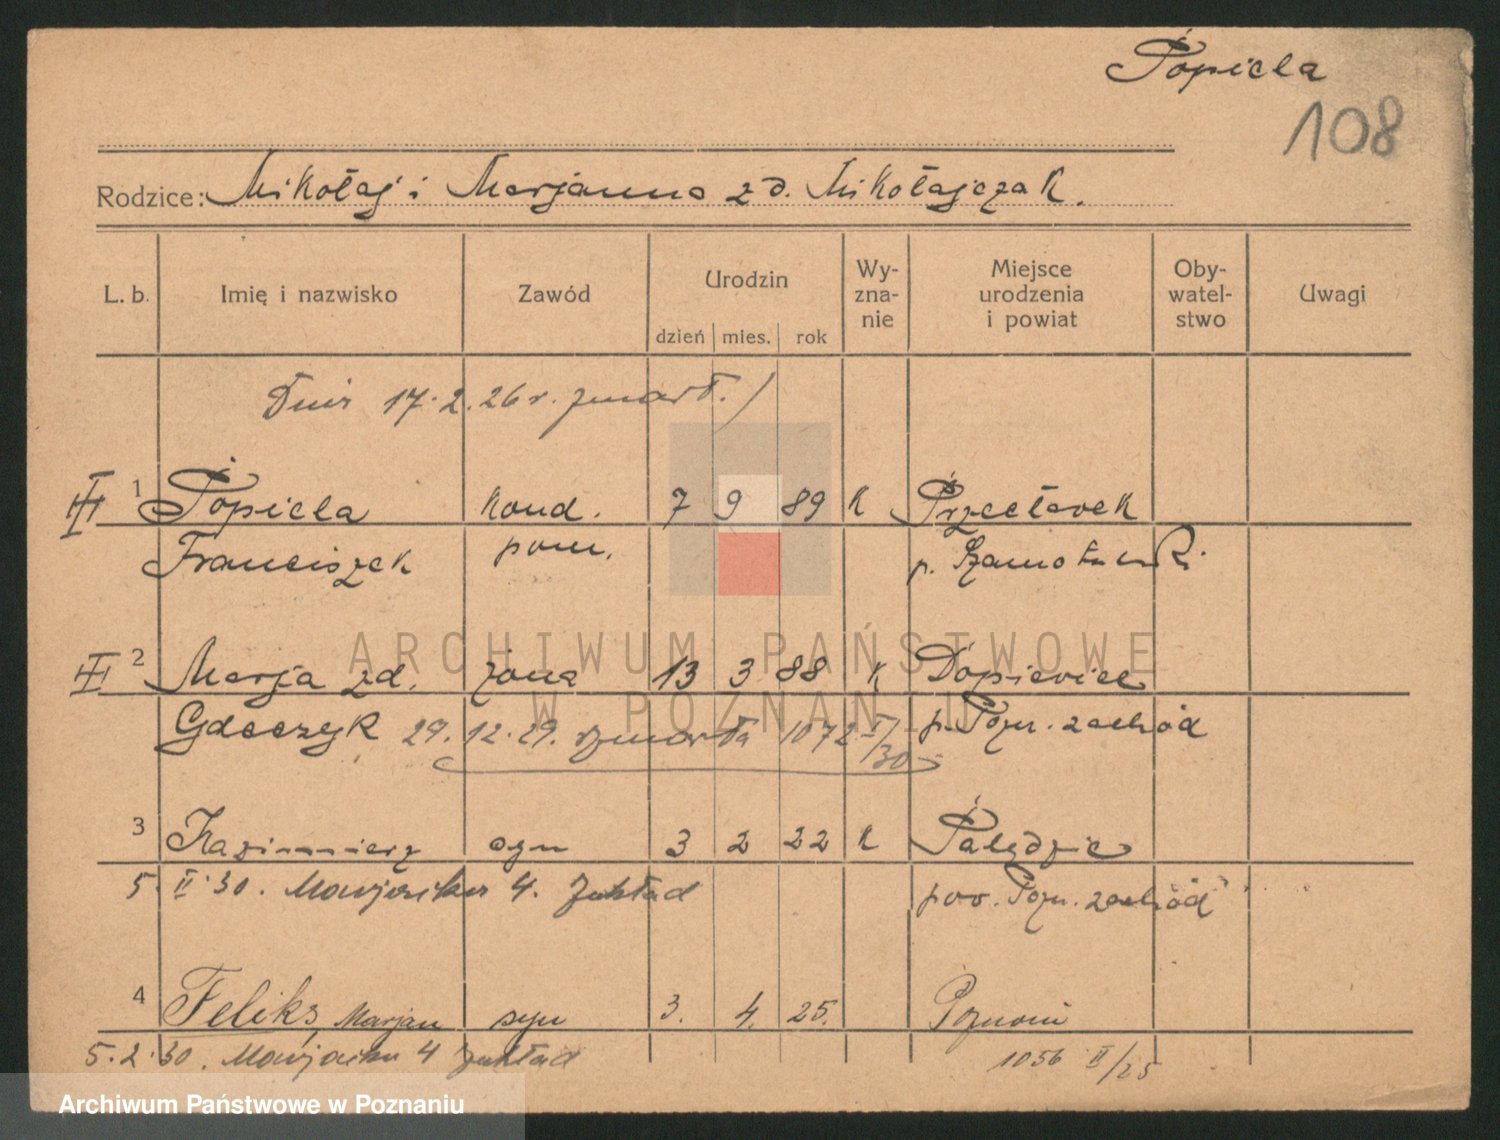 Popiela
108
Rodzice: Mikołaj i Marjanna z d. Mikołajczak.
L. b. Imię i nazwisko Zawód Urodzin Wy- Miejsce Oby- Uwagi
zna- urodzenia watel-
nie i powiat stwo
dzień mies. rok
Dnia 17.2.26 r. zmarł.
III 1 Popiela kond. 7 9 89 K Przecławek
Franciszek pom. p. Szamotulski
III 2 Marja zd. żona 13 3 88 K Dopiewiec
Gdaczyk 29.12.29. zmarła 1072 I/30 p. Pozn. zachód
3 Kazimierz syn 3 2 22 K Palędzie
5. II 30. 4. Zakład pow. Pozn. zachód
4 Feliks Marjan syn 3. 4. 25. Poznań
5.2.30. 4 Zakład 1056 II/25
ARCHIWUM PAŃSTWOWE
W POZNANIU
Archiwum Państwowe w Poznaniu